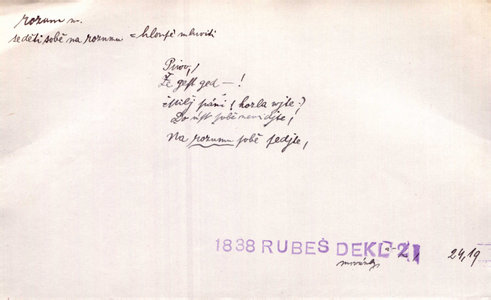 rozum m.
seděti sobě na rozumu = hloupě mluviti
Pivo,
Že gest ged —!
Milj páni (kozla wjte:)
Do úst sobě newidjte,
Na rozumu sobě sedjte,
1838 RUBEŠ DEKL 2
24,19